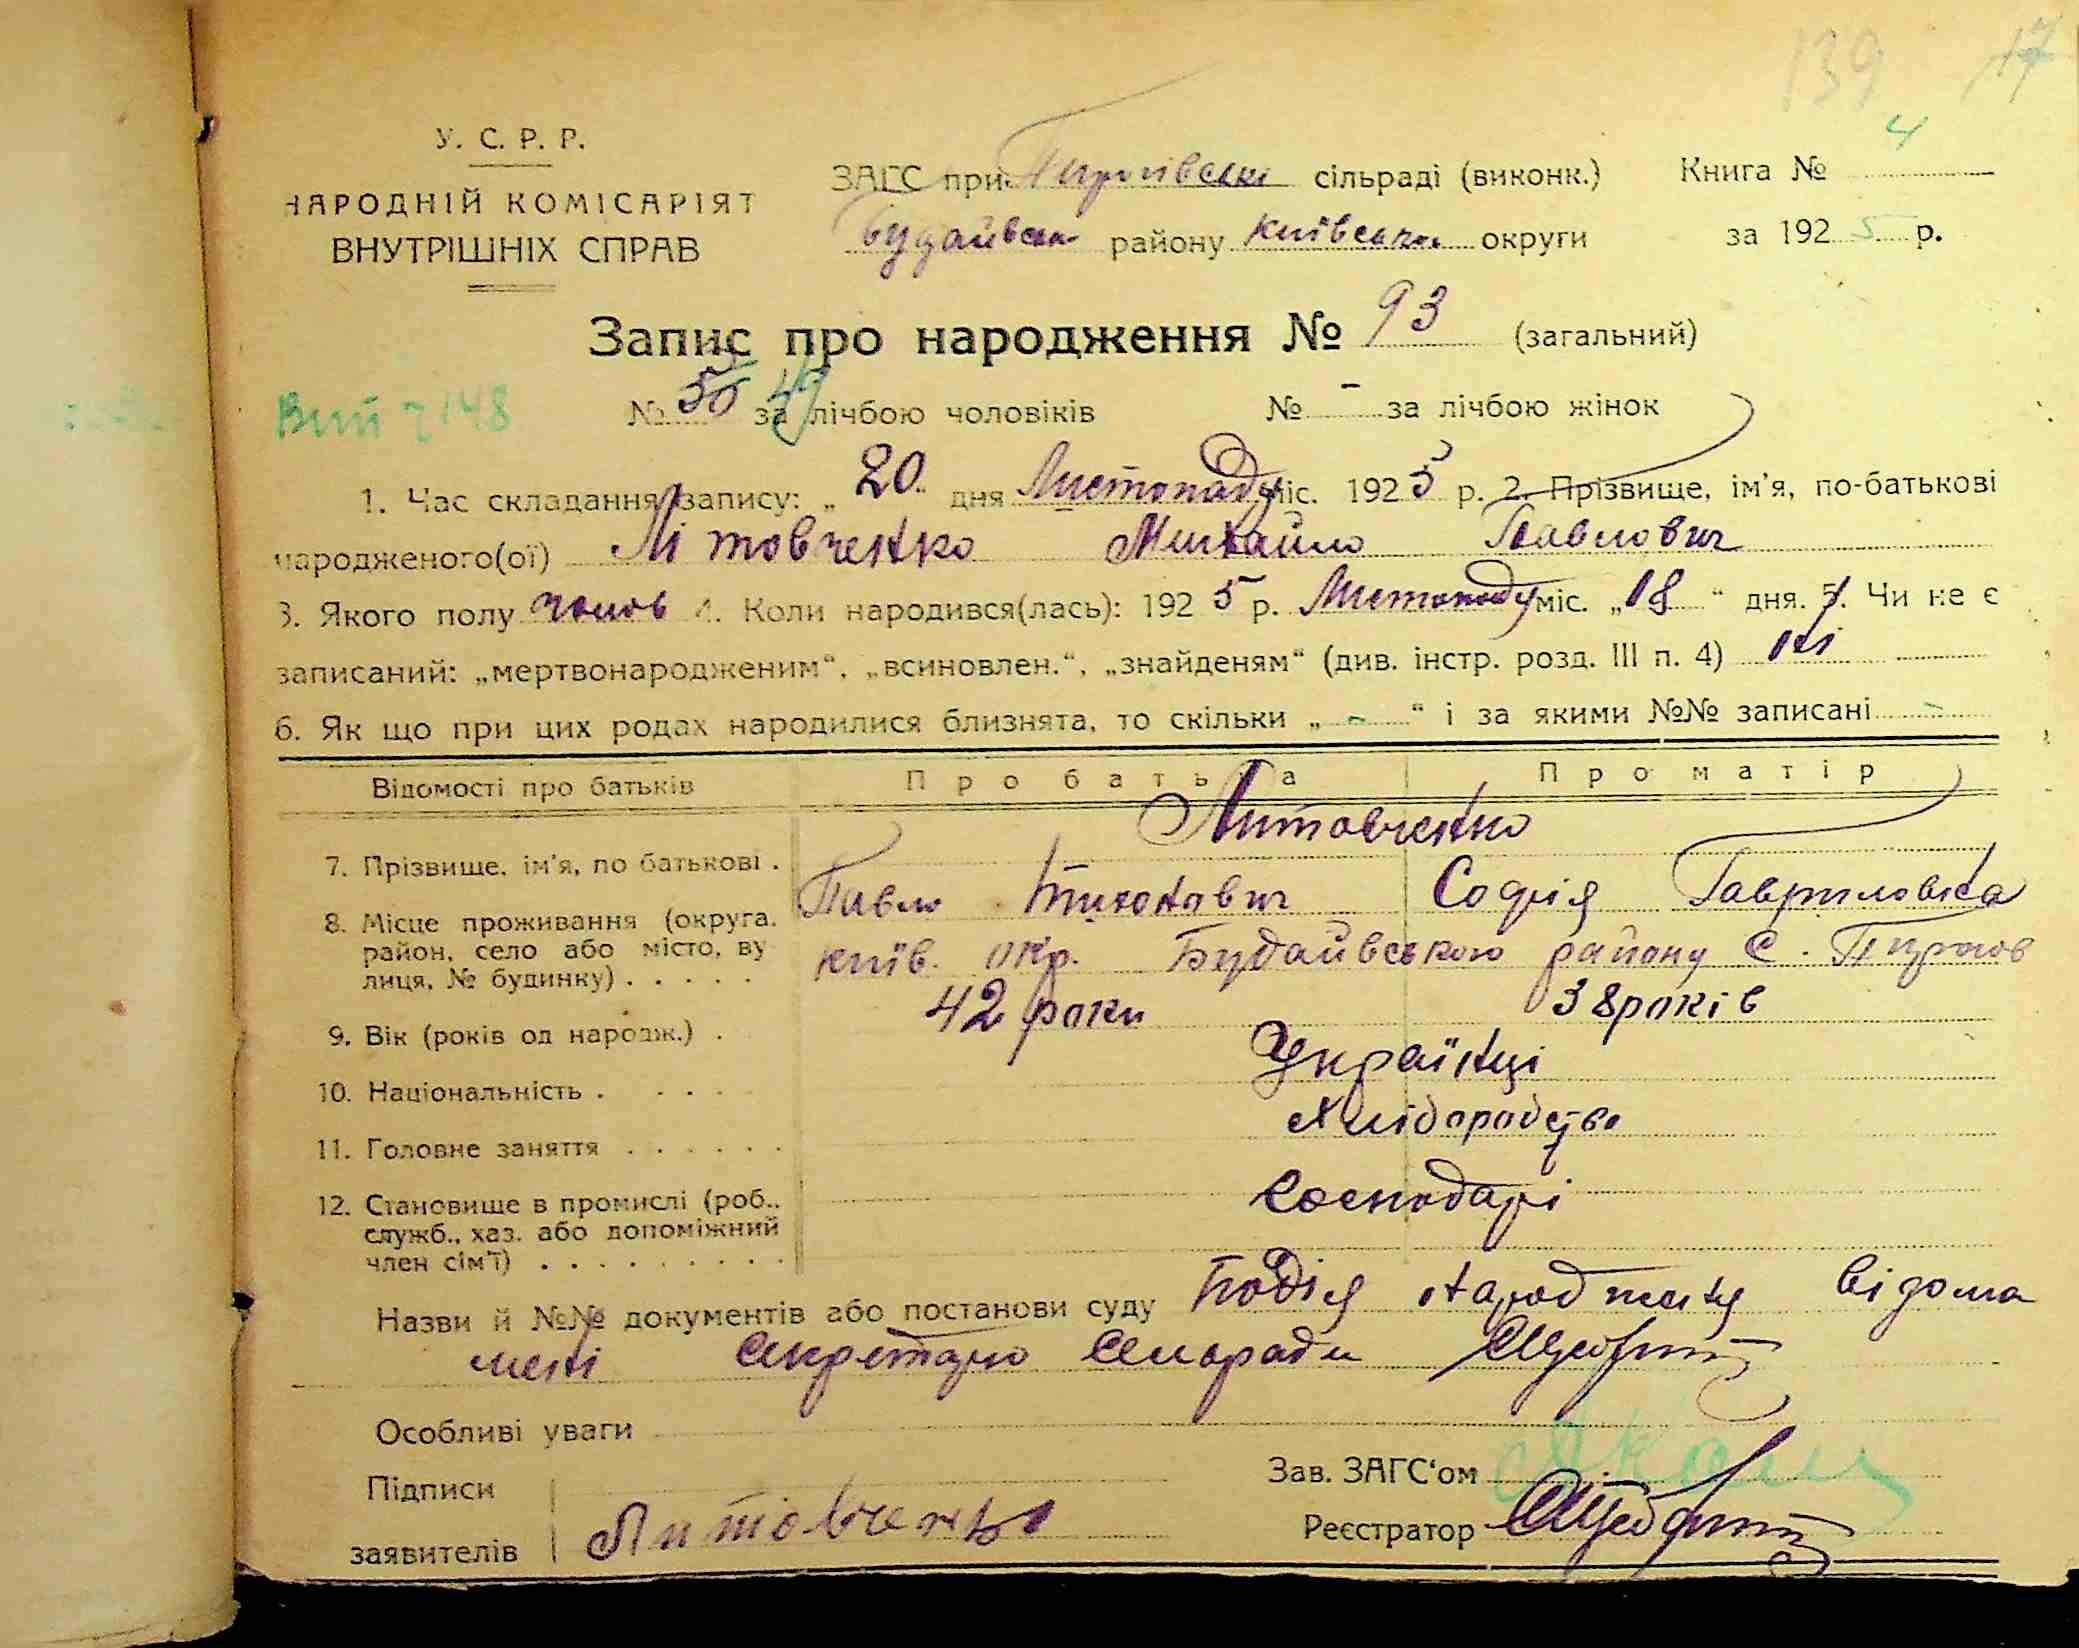 139 17
У. С. Р. Р.
НАРОДНІЙ КОМІСАРІЯТ
ВНУТРІШНІХ СПРАВ
ЗАГС при Пирогівськ сільраді (виконк.) Книга № 4
Будаївськ району Київської округи за 1925 р.
Запис про народження № 93 (загальний)
№ 50 49 за лічбою чоловіків № - за лічбою жінок
148
1. Час складання запису: „20" дня Листопаду міс. 1925 р. 2. Прізвище, ім'я, по-батькові
народженого(ої) Літовченко Михайло Павлович
3. Якого полу чолов 4. Коли народився(лась): 1925 р. Листопаду міс. „18" дня. 5. Чи не є
записаний: „мертвонародженим", „всиновлен.", „знайденям" (див. інстр. розд. III п. 4) ні
6. Як що при цих родах народилися близнята, то скільки „ - " і за якими №№ записані -
Відомості про батьків Про батька Про матір
Литовченко
7. Прізвище, ім'я, по батькові . Павло Тихонович Софія Гавриловна
8. Місце проживання (округа, район, село або місто, ву лиця, № будинку) . . . . . Київ. окр. Будаївського району С. Пирогов
9. Вік (років од народж.) . 42 роки 38 років
10. Національність . . . . Українці
11. Головне заняття . . . . . . Хліборобство
12. Становище в промислі (роб., служб., хаз. або допоміжний член сім'ї) . . . . . . . . . Господарі
Назви й №№ документів або постанови суду Подія народження відома
мені Секретарю Сільради
Особливі уваги
Підписи
заявителів Литовченко
Зав. ЗАГС'ом
Реєстратор